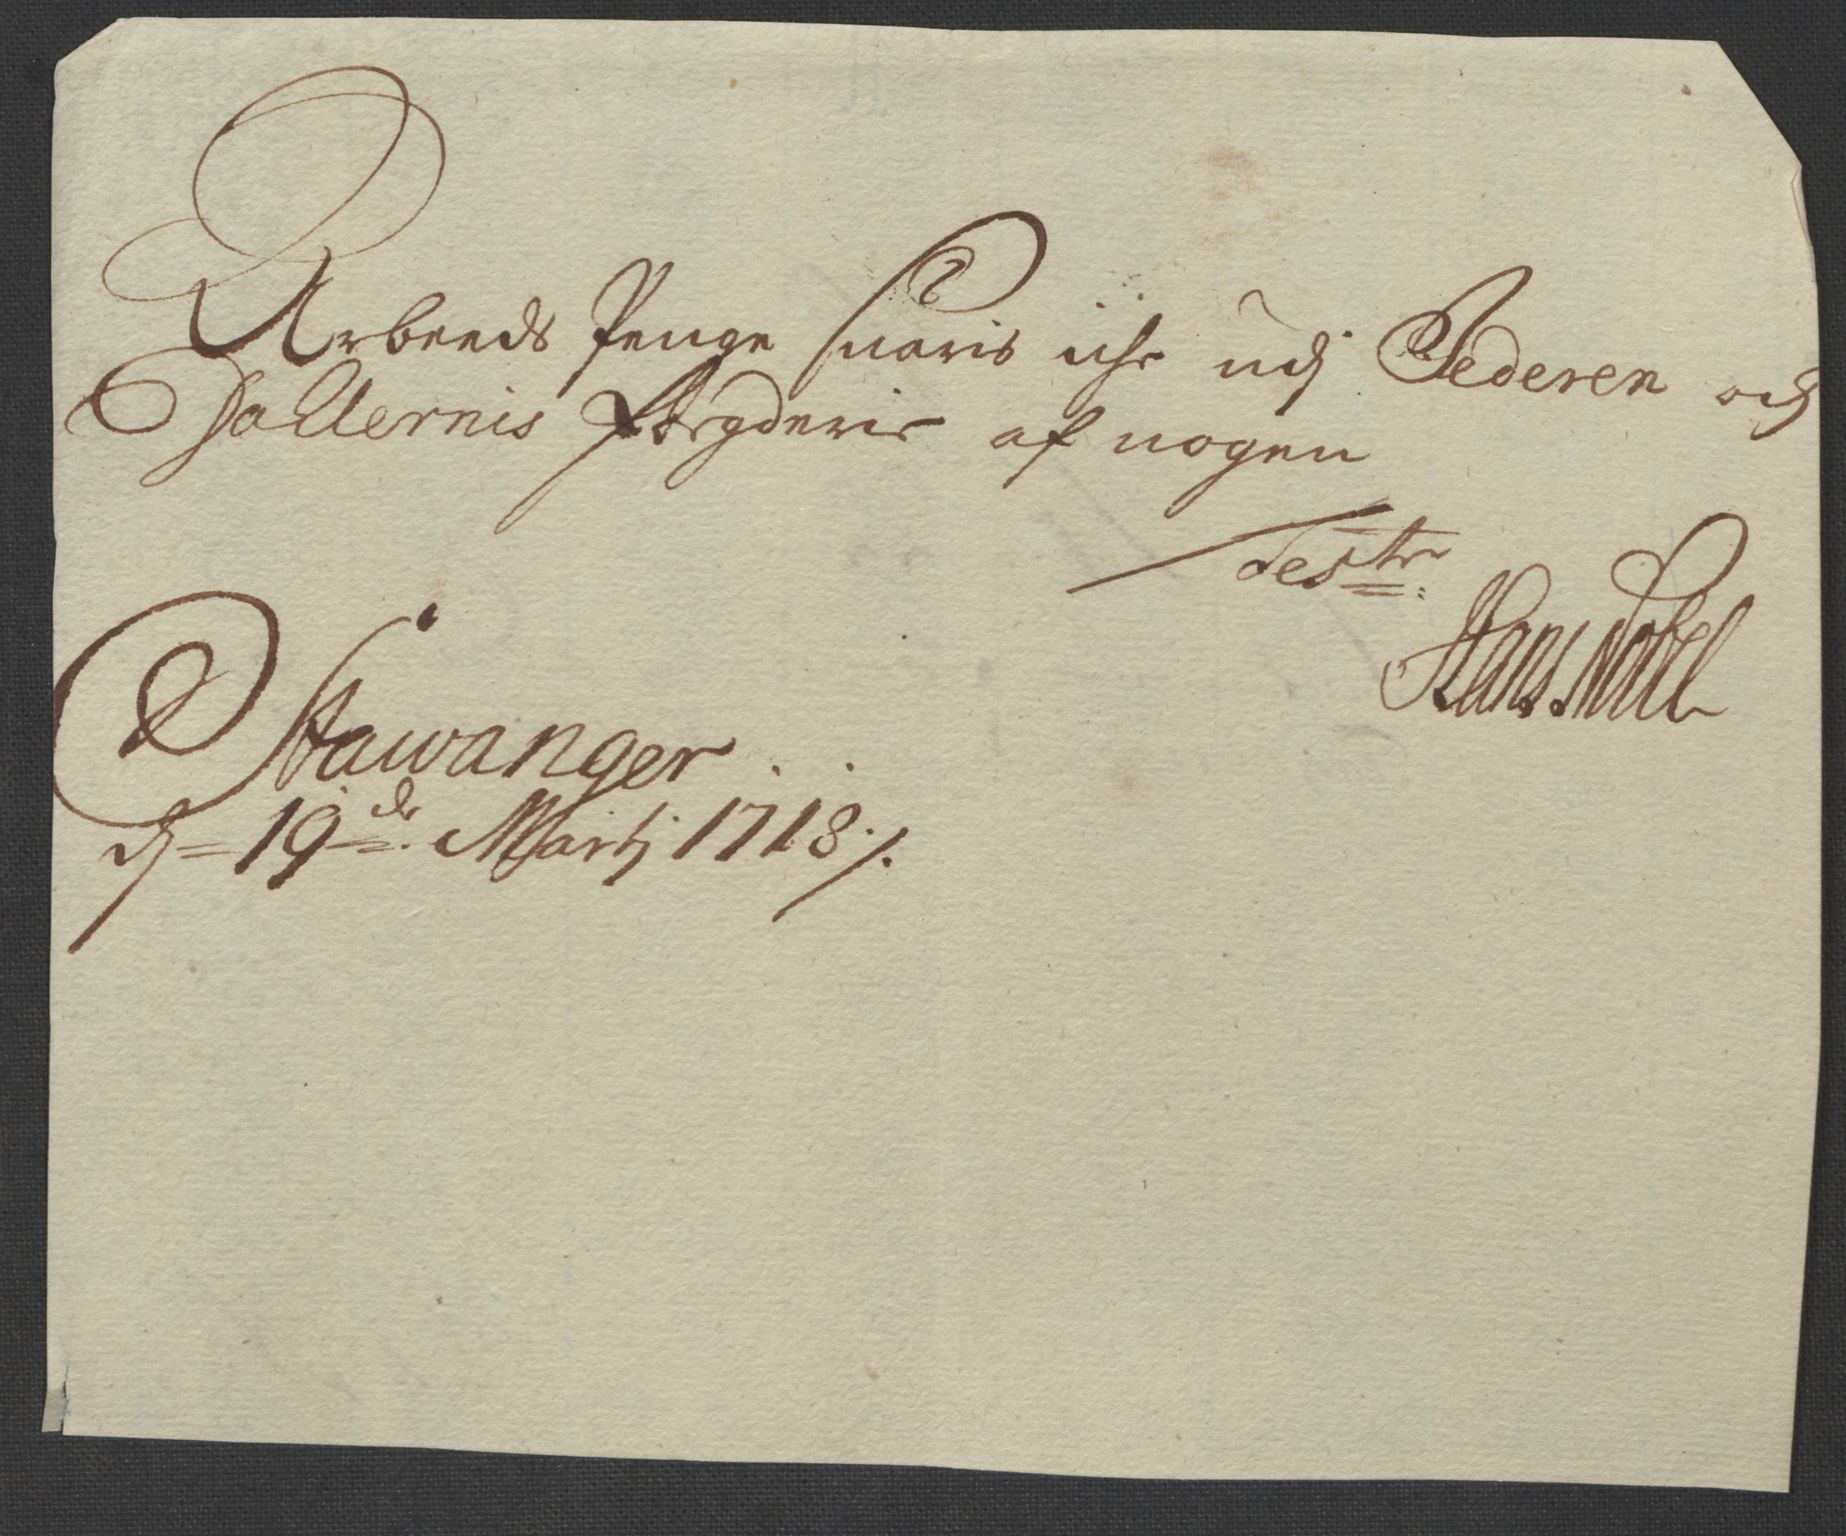 Arbeeds Penge suaris iche udj Jederen och
Dallernis fogderie af nogen
Teste
Hans Nobel
Stawanger
d 19de Martj 1718